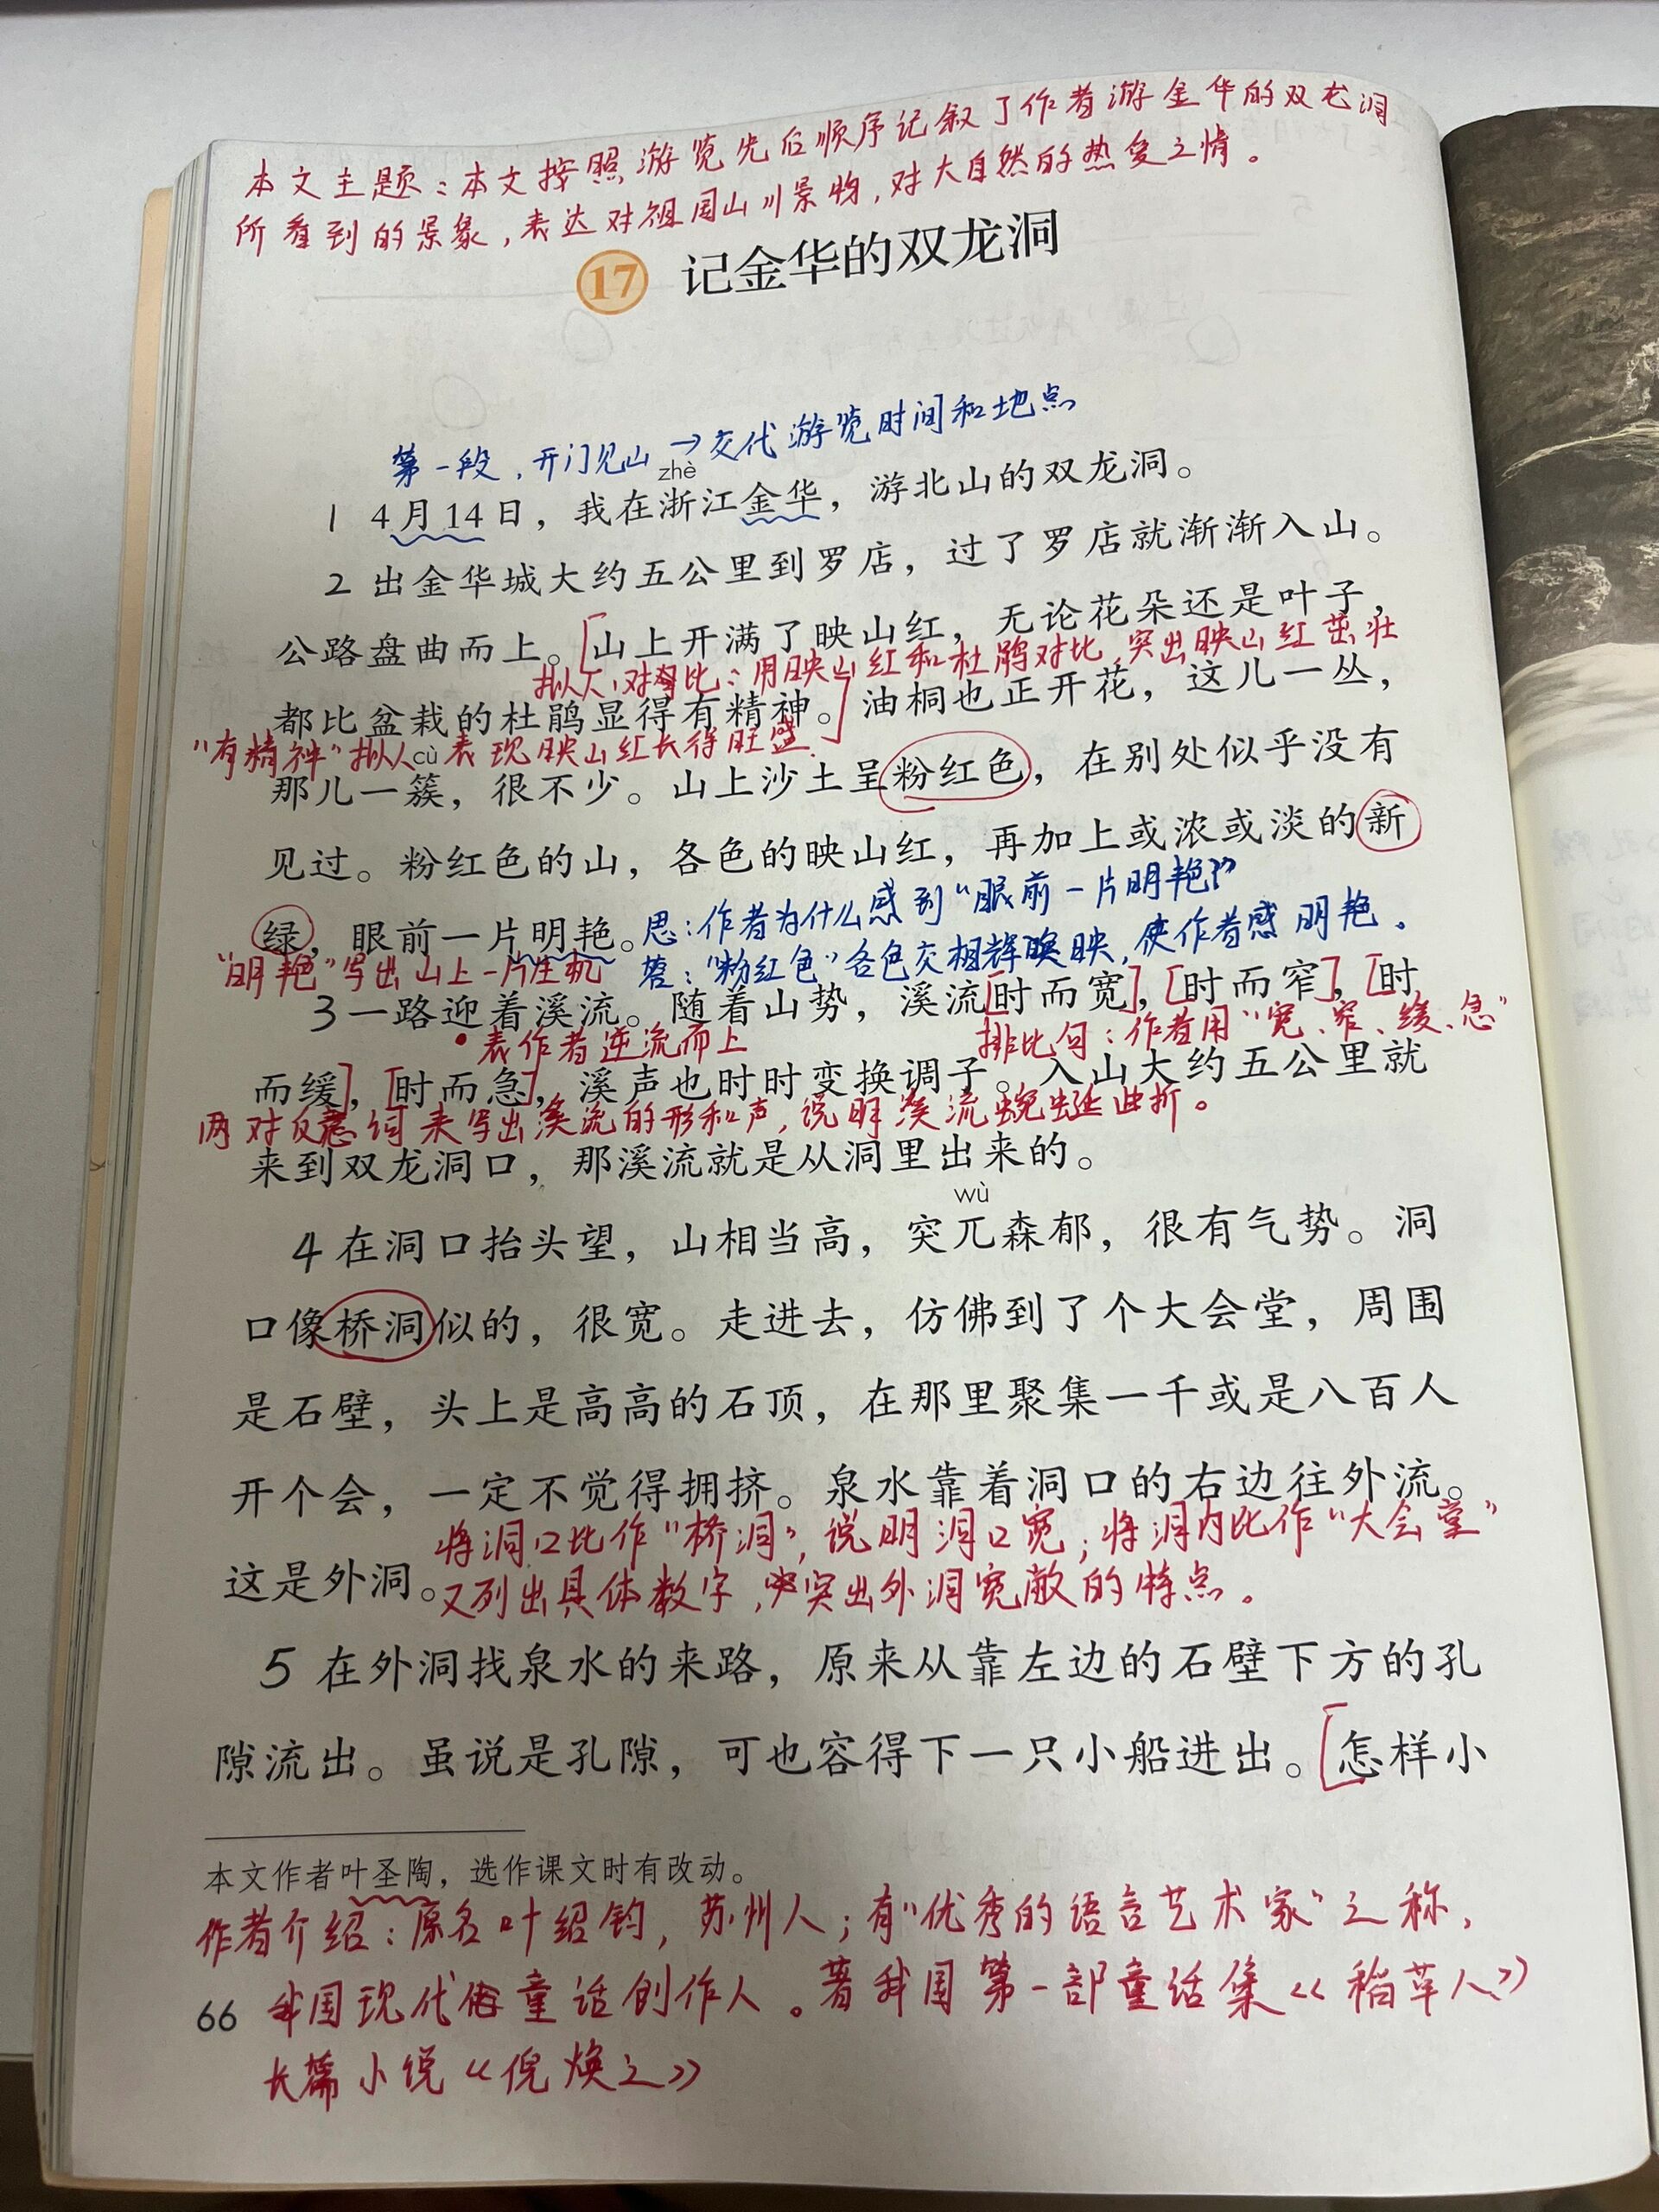 本文主题：本文按照游览先后顺序记叙了作者游金华的双龙洞
所看到的景象，表达对祖国山川景物，对大自然的热爱之情。
17 记金华的双龙洞
第一段，开门见山→交代游览时间和地点
zhè
1 4月14日，我在浙江金华，游北山的双龙洞。
2 出金华城大约五公里到罗店，过了罗店就渐渐入山。
公路盘曲而上。[山上开满了映山红，无论花朵还是叶子，
拟人、对比：用映山红和杜鹃对比，突出映山红茁壮
都比盆栽的杜鹃显得有精神。]油桐也正开花，这儿一丛，
“有精神”拟人 表现映山红长得旺盛
cù
那儿一簇，很不少。山上沙土呈粉红色，在别处似乎没有
见过。粉红色的山，各色的映山红，再加上或浓或淡的新
绿，眼前一片明艳。思：作者为什么感到“眼前一片明艳？”
“明艳”写出山上一片生机 答：“粉红色”各色交相辉映，使作者感明艳。
3 一路迎着溪流。随着山势，溪流[时而宽]，[时而窄]，[时
·表作者逆流而上 排比句：作者用“宽、窄、缓、急”
而缓]，[时而急]，溪声也时时变换调子。入山大约五公里就
两对反意词来写出溪流的形和声，说明溪流蜿蜒曲折。
来到双龙洞口，那溪流就是从洞里出来的。
wù
4 在洞口抬头望，山相当高，突兀森郁，很有气势。洞
口像桥洞似的，很宽。走进去，仿佛到了个大会堂，周围
是石壁，头上是高高的石顶，在那里聚集一千或是八百人
开个会，一定不觉得拥挤。泉水靠着洞口的右边往外流。
将洞口比作“桥洞”，说明洞口宽；将洞内比作“大会堂”
这是外洞。又列出具体数字，突出外洞宽敞的特点。
5 在外洞找泉水的来路，原来从靠左边的石壁下方的孔
隙流出。虽说是孔隙，可也容得下一只小船进出。[怎样小
本文作者叶圣陶，选作课文时有改动。
作者介绍：原名叶绍钧，苏州人；有“优秀的语言艺术家”之称，
66 我国现代童话创作人。著我国第一部童话集《稻草人》
长篇小说《倪焕之》